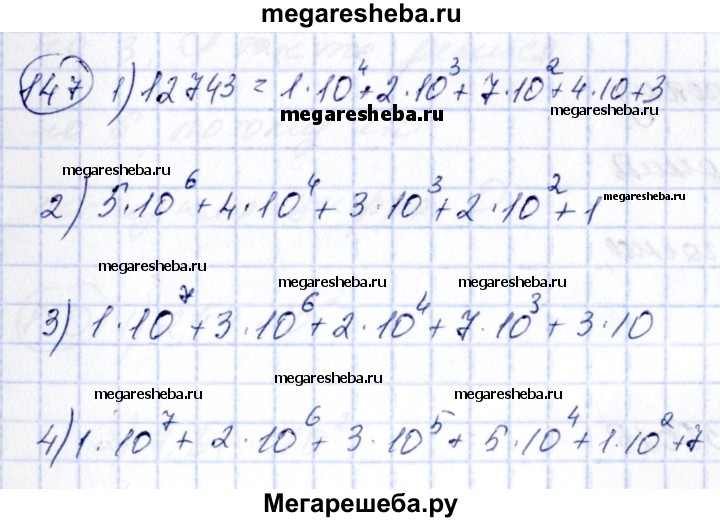 megaresheba.ru
147 1) 12743 = 1·10⁴+2·10³+7·10²+4·10+3
megaresheba.ru
megaresheba.ru megaresheba.ru megaresheba.ru
2) 5·10⁶+4·10⁴+3·10³+2·10²+1
megaresheba.ru megaresheba.ru megaresheba.ru
3) 1·10⁷+3·10⁶+2·10⁴+7·10³+3·10
megaresheba.ru megaresheba.ru megaresheba.ru
4) 1·10⁷+2·10⁶+3·10⁵+5·10⁴+1·10²+7
Мегарешеба.ру